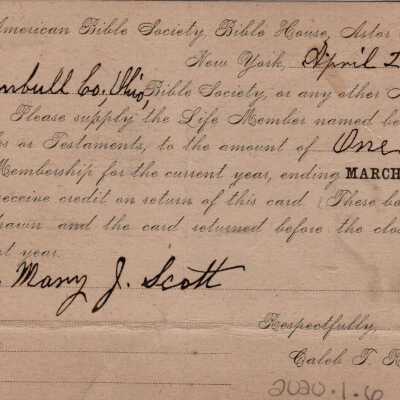 American Bible Society, Bible House, Astor
New York, April 2
mbull Co, Ohio, Bible Society, or any other
Please supply the Life Member named be
s or Testaments, to the amount of One
Membership for the current year, ending MARCH
receive credit on return of this card. These bo
rawn and the card returned before the clos
t year.
Mary J. Scott
Respectfully,
Caleb T. R
2020.1.6